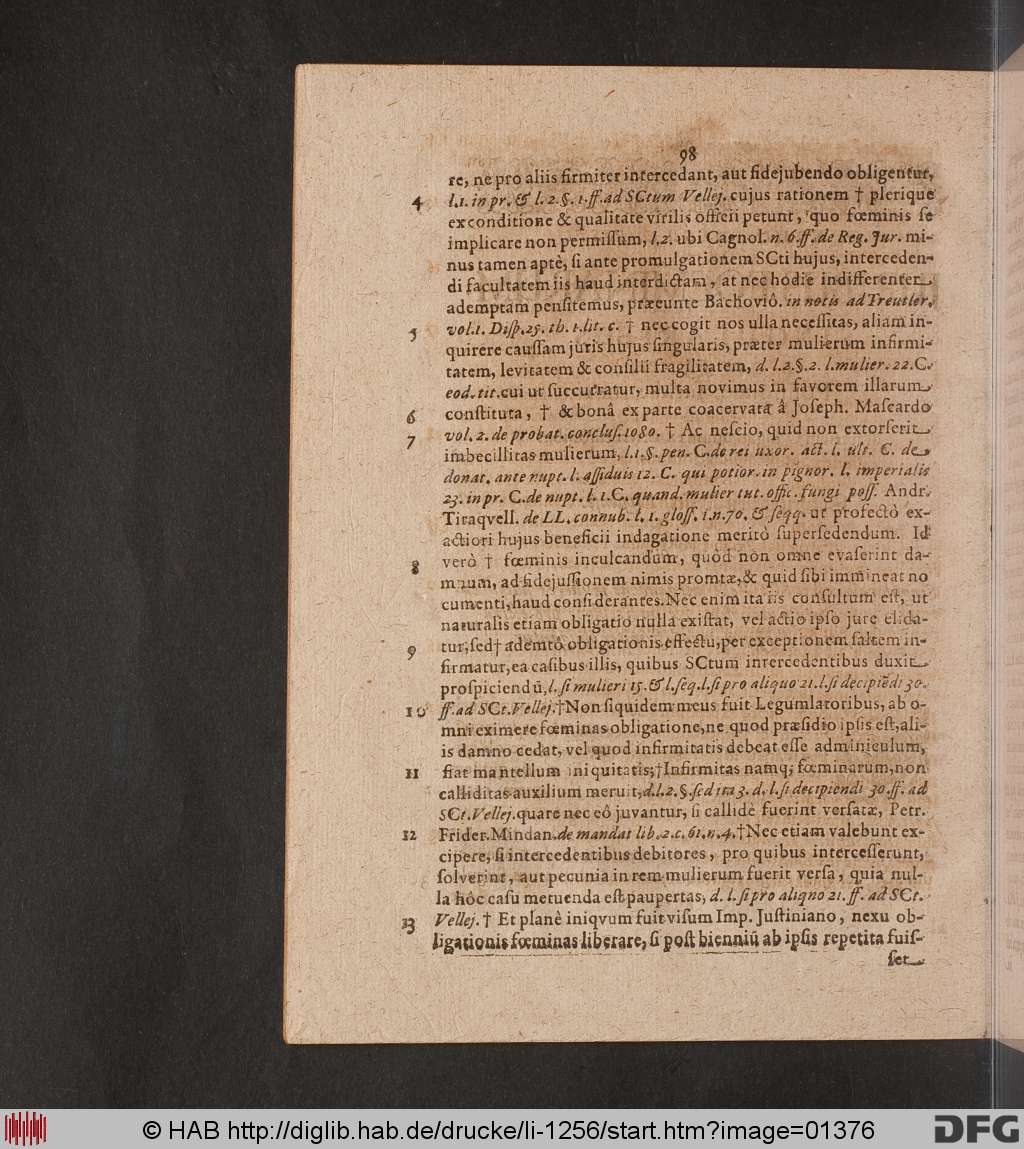 98
re, ne pro aliis firmiter intercedant, aut fidejubendo obligentur,
4 l.1. in pr. & l. 2. §. 1. ff. ad SCtum Vellej. cujus rationem † plerique
ex conditione & qualitate virilis officii petunt, quo fœminis se
implicare non permissum, l. 2. ubi Cagnol. n. 6. ff. de Reg. Jur. mi-
nus tamen aptè, si ante promulgationem SCti hujus, interceden-
di facultatem iis haud interdictam, at nec hodie indifferenter
ademptam pensitemus, præeunte Bachoviô. in notis ad Treutler.
5 vol. 1. Disp. 25. th. 1. lit. c. † nec cogit nos ulla necessitas, aliam in-
quirere caussam juris hujus singularis, præter mulierum infirmi-
tatem, levitatem & consilii fragilitatem, d. l. 2. §. 2. l. mulier. 22. C.
eod. tit. cui ut succurratur, multa novimus in favorem illarum
6 constituta, † & bonâ ex parte coacervata â Joseph. Mascardo
7 vol. 2. de probat. conclus. 1080. † Ac nescio, quid non extorserit
imbecillitas mulierum, l. 1. §. pen. C. de rei uxor. act. l. ult. C. de
donat. ante nupt. l. assiduis 12. C. qui potior. in pignor. l. imperialis
23. in pr. C. de nupt. l. 1. C. quand. mulier tut. offic. fungi poss. Andr.
Tiraqvell. de LL. connub. l. 1. gloss. 1. n. 70. & seqq. ut profectò ex-
actiori hujus beneficii indagatione meritò supersedendum. Id
8 verò † fœminis inculcandum, quòd non omne evaserint da-
mnum, ad fidejussionem nimis promtæ, & quid sibi immineat no
cumenti, haud considerantes. Nec enim ita iis consultum est, ut
naturalis etiam obligatio nulla existat, vel actio ipso jure elida-
9 tur, sed † ademtô obligationis effectu, per exceptionem saltem in-
firmatur, ea casibus illis, quibus SCtum intercedentibus duxit
prospiciendū, l. si mulieri 15. & l. seq. l. si pro aliquo 21. l. si decipiēdi 30.
10 ff. ad SCt. Vellej. † Non siquidem meus fuit Legumlatoribus, ab o-
mni eximere fœminas obligatione, ne quod præsidio ipsis est, ali-
is damno cedat, vel quod infirmitatis debeat esse adminiculum,
11 fiat mantellum iniquitatis; † Infirmitas namq; fœminarum, non
calliditas auxilium meruit, d. l. 2. §. sed ita 3. d. l. si decipiendi 30. ff. ad
SCt. Vellej. quare nec eô juvantur, si callidè fuerint versatæ, Petr.
12 Frider. Mindan. de mandat lib. 2. c. 61. n. 4. † Nec etiam valebunt ex-
cipere, si intercedentibus debitores, pro quibus intercesserunt,
solverint, aut pecunia in rem mulierum fuerit versa, quia nul-
la hôc casu metuenda est paupertas, d. l. si pro aliqno 21. ff. ad SCt.
13 Vellej. † Et planè iniqvum fuit visum Imp. Justiniano, nexu ob-
ligationis fœminas liberare, si post bienniū ab ipsis repetita fuis-
set
© HAB http://diglib.hab.de/drucke/li-1256/start.htm?image=01376
DFG